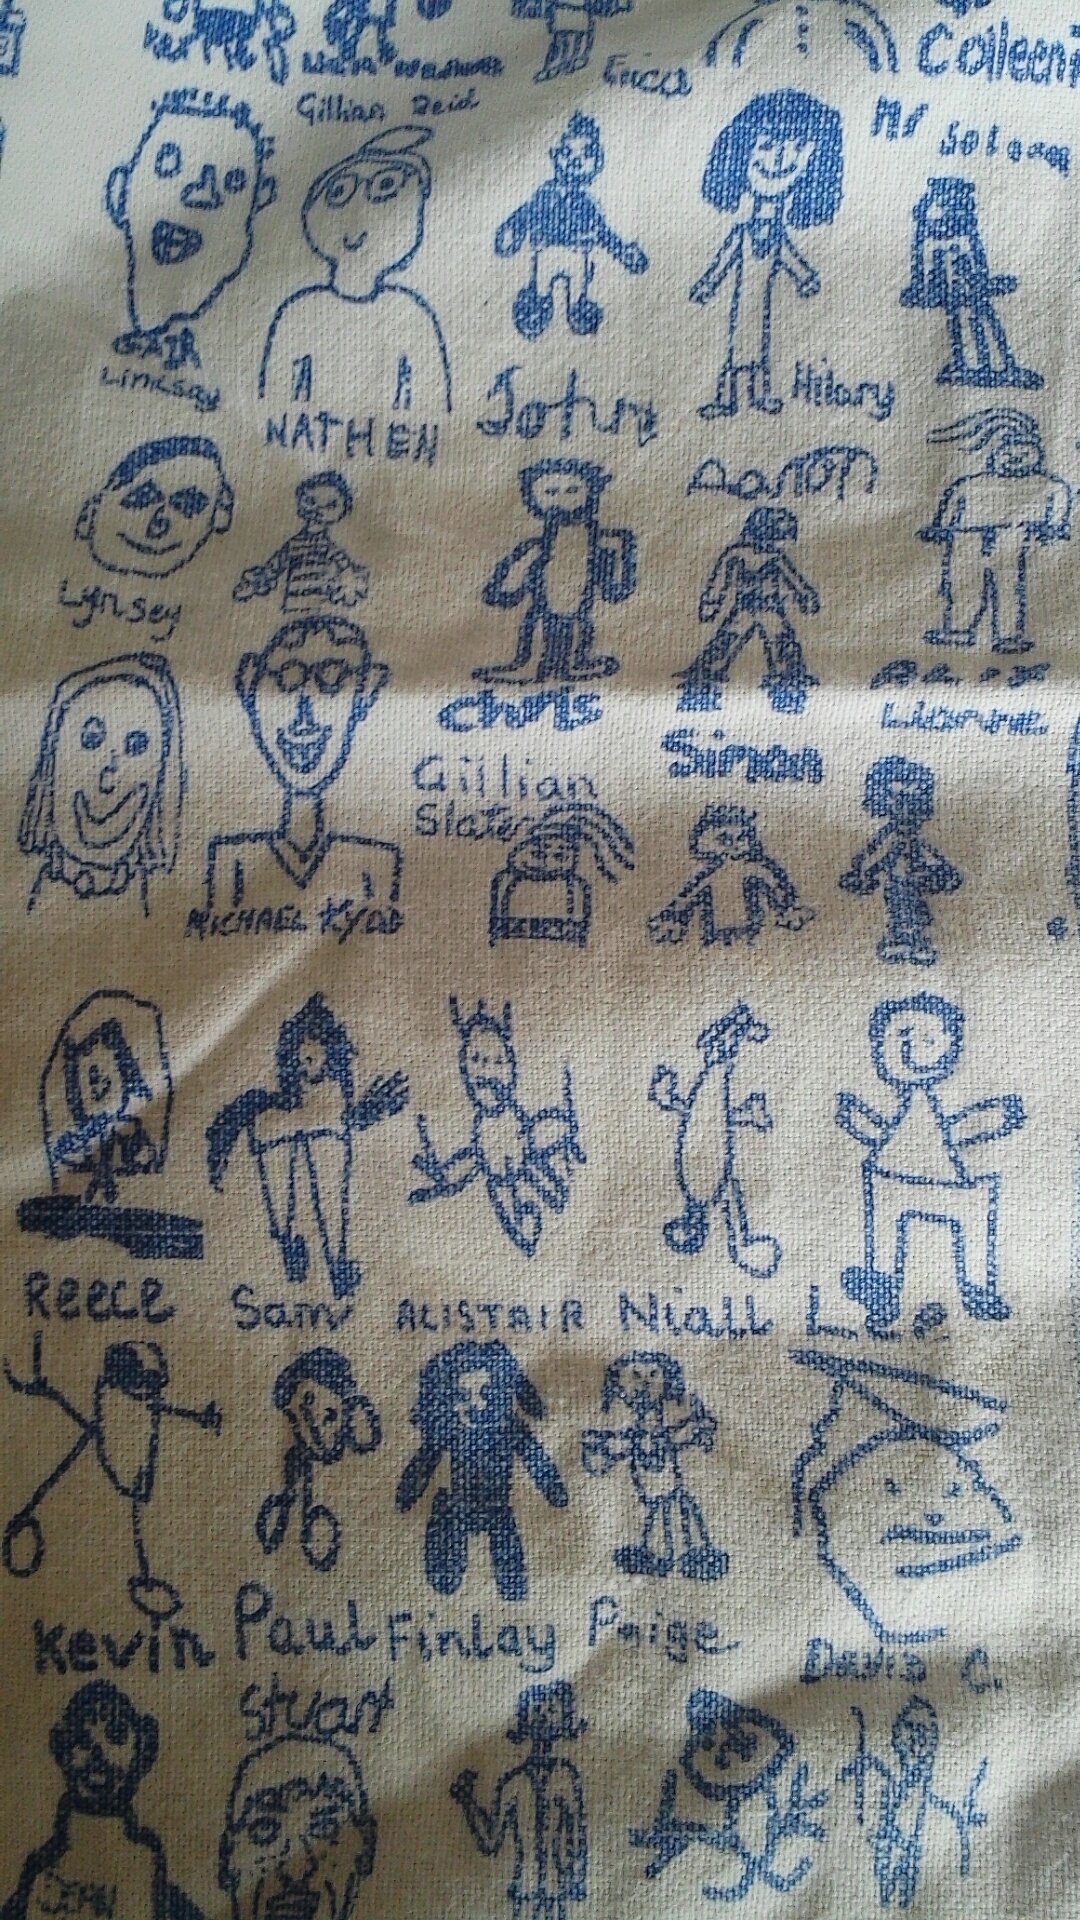 Colleen
Erica
Gillian Reid
Mr
GAIR
Lindsay
NATHEN
John
Hilary
Lynsey
Chris
Simon
Lianne
Gillian
Slater
MICHAEL KYDD
Reece
Sam
ALISTAIR
Niall
Kevin
Paul
Finlay
Paige
David G.
Stuart